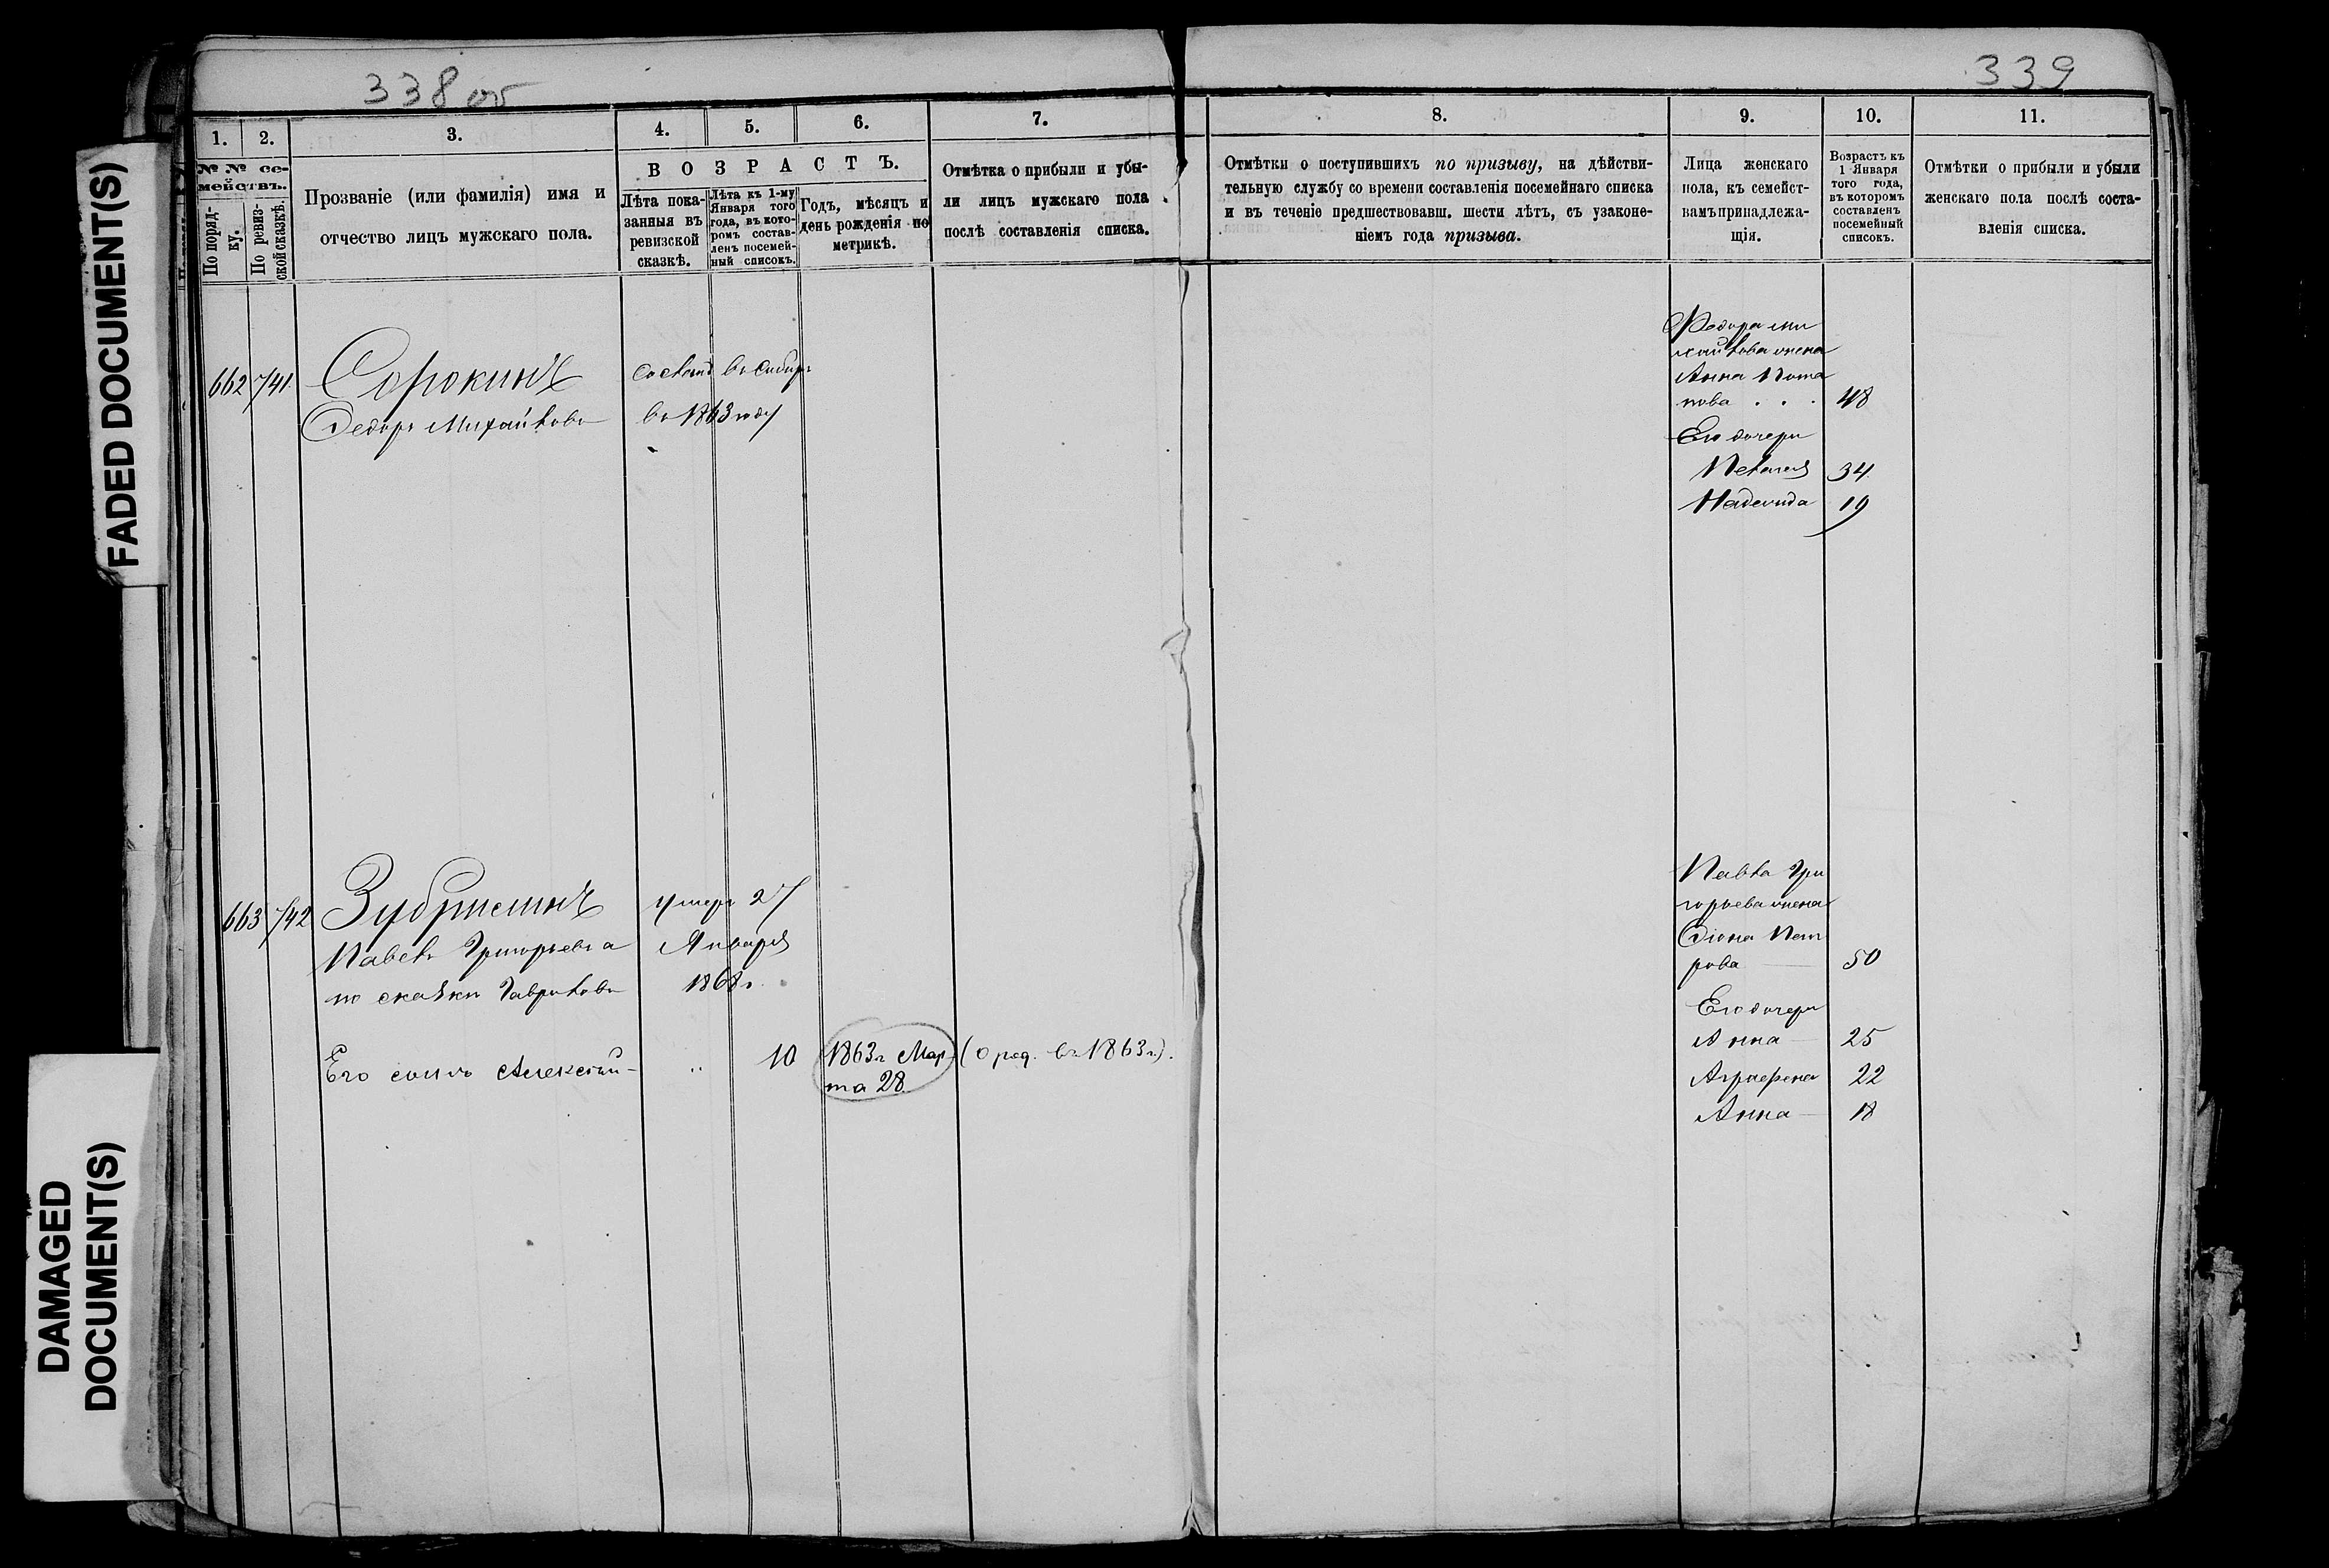 338 об
339
1.
2.
3.
4.
5.
6.
7.
8.
9.
10.
11.
№ № се-
мействъ.
По поряд-
ку.
По ревиз-
ской сказкѣ.
Прозваніе (или фамилія) имя и
отчество лицъ мужскаго пола.
ВОЗРАСТЪ.
Лѣта пока-
занныя въ
ревизской
сказкѣ.
Лѣта къ 1-му
Января того
года, въ кото-
ромъ состав-
ленъ посемей-
ный списокъ.
Годъ, мѣсяцъ и
день рожденія по
метрикѣ.
Отмѣтка о прибыли и убы-
ли лицъ мужскаго пола
послѣ составленія списка.
Отмѣтки о поступившихъ по призыву, на дѣйстви-
тельную службу со времени составленія посемейнаго списка
и въ теченіе предшествовавш. шести лѣтъ, съ узаконе-
ніемъ года призыва.
Лица женскаго
пола, къ семейст-
вамъ принадлежа-
щія.
Возрастъ къ
1 Января
того года,
въ которомъ
составленъ
посемейный
списокъ.
Отмѣтки о прибыли и убыли
женскаго пола послѣ соста-
вленія списка.
662 741
Сорокинъ
Федоръ Михайловъ
сосланъ въ Сибирь
въ 1863 году
Федора Ми
хайлова жена
Анна Пота
пова . . . 48
Его дочери
Пелагея 34
Надежда 19
663 742
Павелъ Григорьевъ а
по сказки Гавриловъ
умеръ 27
Января
1868 г.
Его сынъ Алексѣй
" 10
1863 г. Мар
та 28
(о род. въ 1863 г.).
Павла Гри
горьева жена
Пет
рова 50
Его дочери
Анна 25
Аграфена 22
Анна 18
FADED DOCUMENT(S)
DAMAGED
DOCUMENT(S)